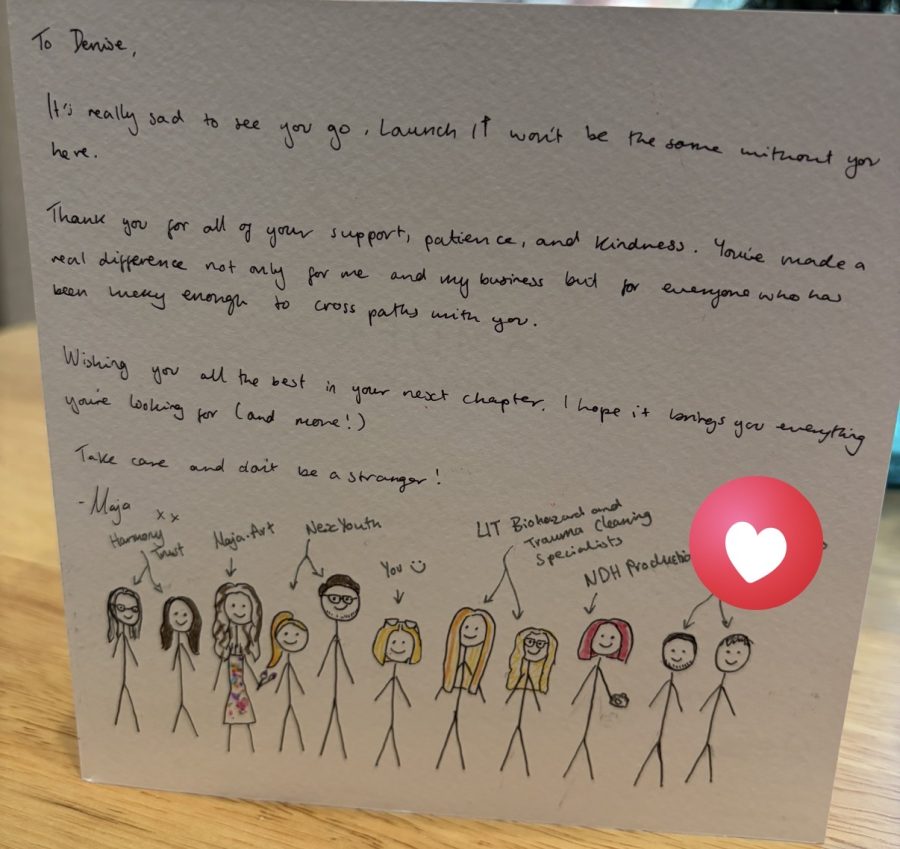 To Denise,
It's really sad to see you go. Launch It won't be the same without you
here.
Thank you for all of your support, patience, and kindness. You've made a
real difference not only for me and my business but for everyone who has
been lucky enough to cross paths with you.
Wishing you all the best in your next chapter. I hope it brings you everything
you're looking for (and more!)
Take care and don't be a stranger!
- Maja
x x
Harmony
Trust
Naja.Art
NexYouth
You
LIT Biohazard and
Trauma Cleaning
Specialists
NDH Productio